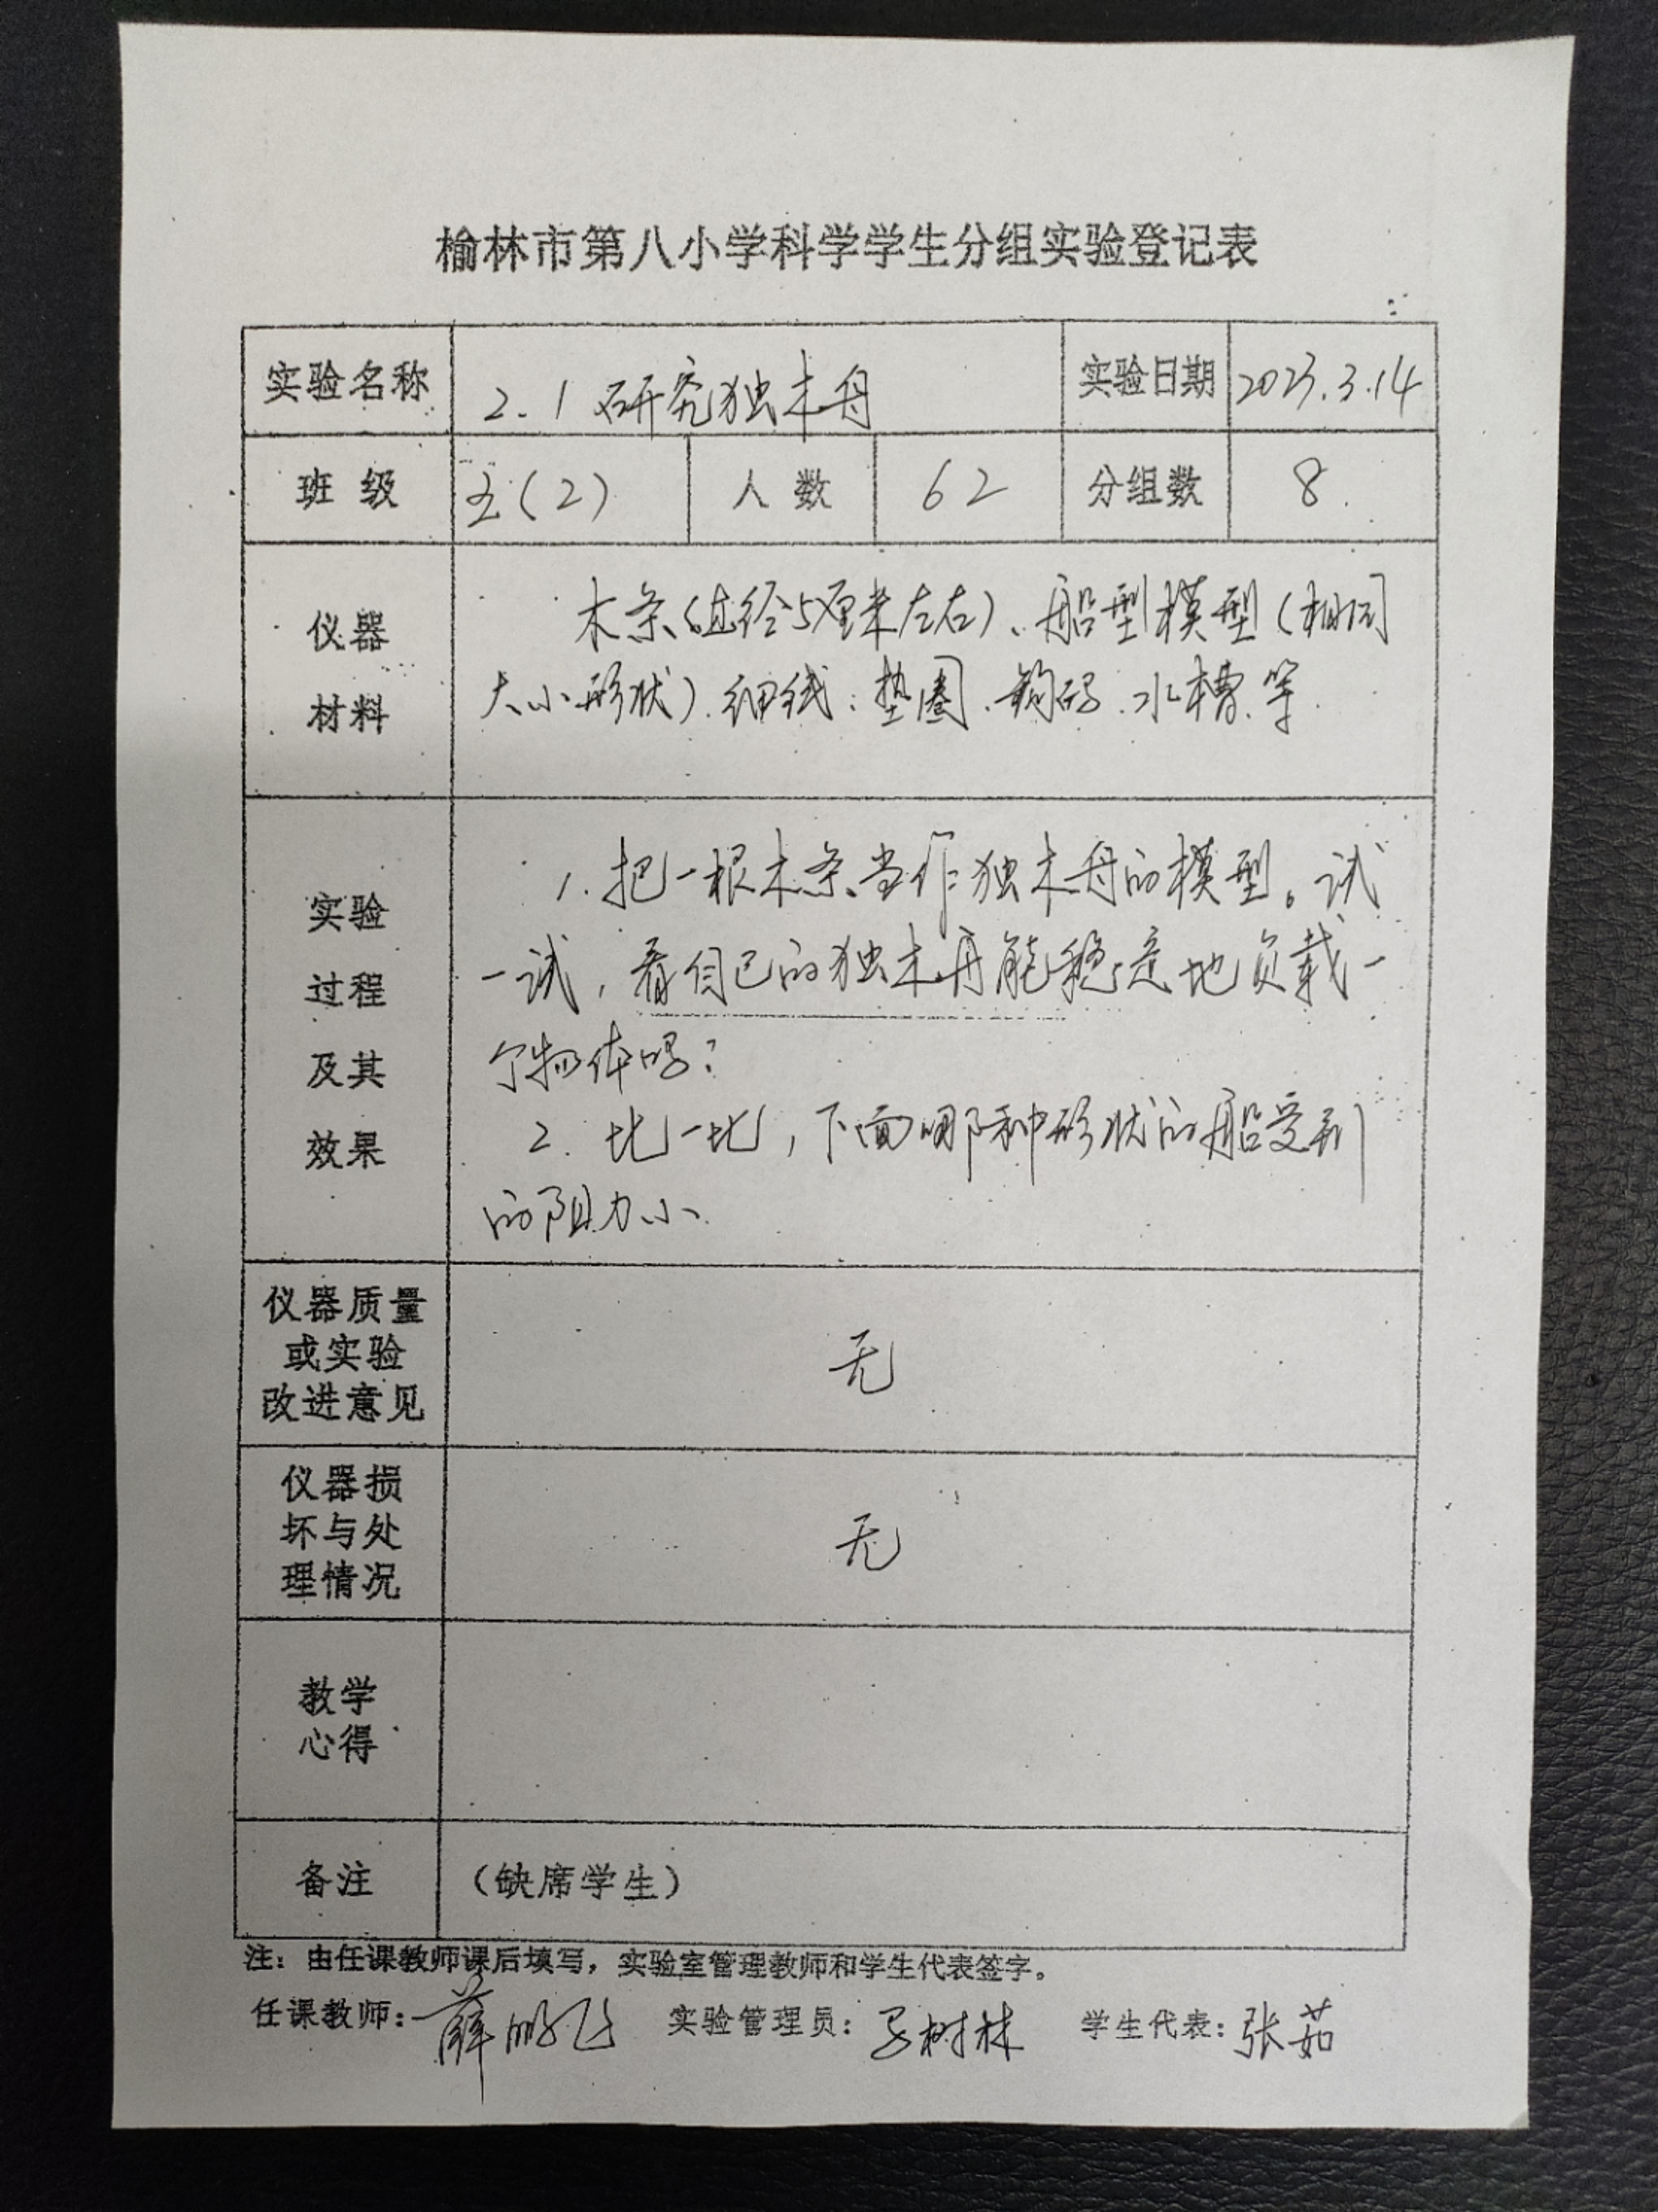 榆林市第八小学科学学生分组实验登记表
实验名称 2.1 研究独木舟 实验日期 2023.3.14
班级 五(2) 人数 62 分组数 8
仪器
材料
木条(直径5厘米左右)、船型模型(相同
大小形状)、细线、垫圈、钩码、水槽、等
实验
过程
及其
效果
1. 把一根木条当作独木舟的模型。试
一试,看自己的独木舟能稳定地负载一
个物体吗?
2. 比一比,下面哪种形状的船受到
的阻力小.
仪器质量
或实验
改进意见
无
仪器损
坏与处
理情况
无
教学
心得
备注 (缺席学生)
注:由任课教师课后填写,实验室管理教师和学生代表签字。
任课教师:薛鹏飞 实验管理员:树林 学生代表:张茹